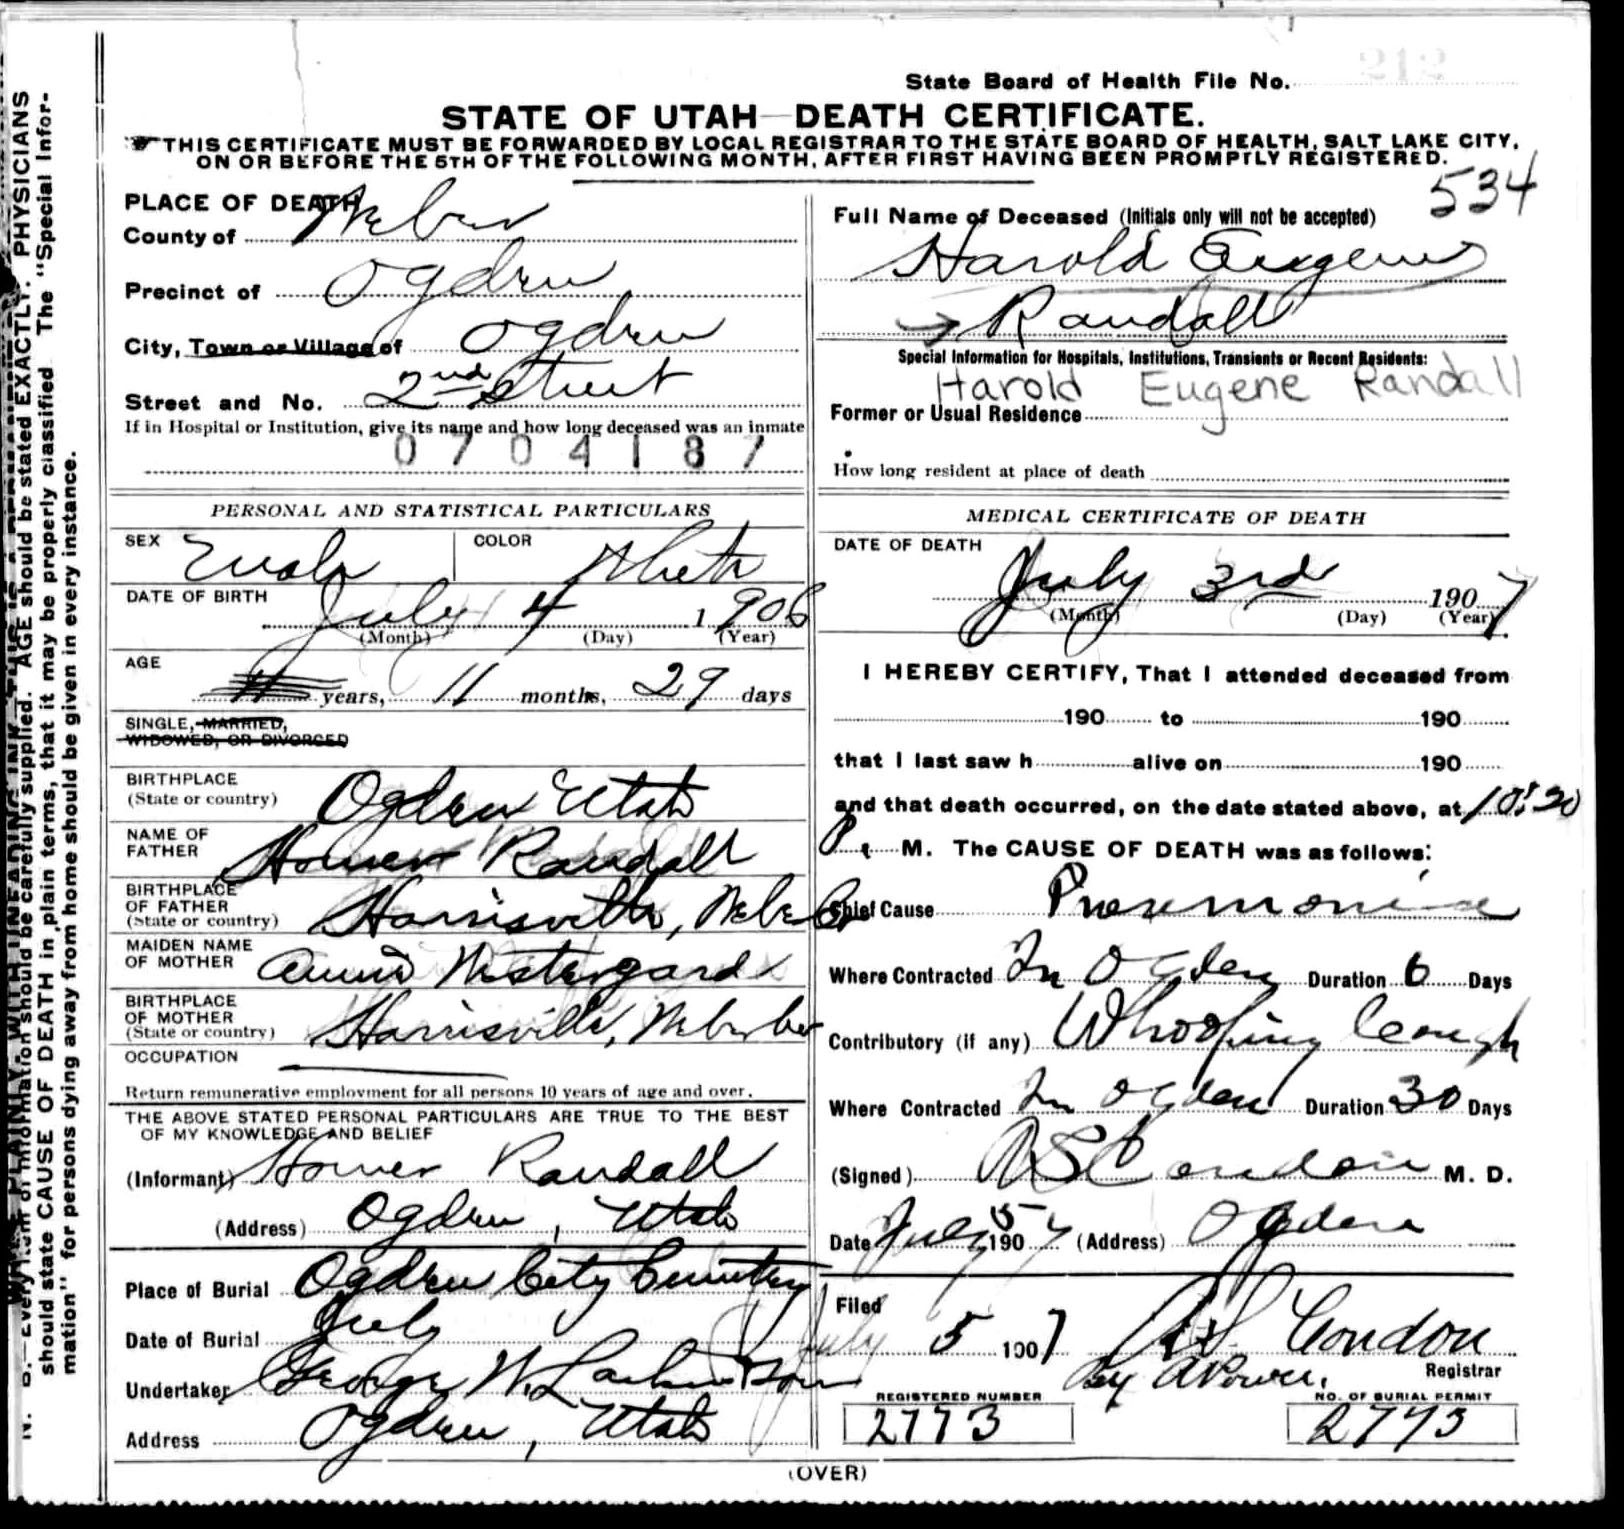 212
State Board of Health File No.
STATE OF UTAH—DEATH CERTIFICATE.
THIS CERTIFICATE MUST BE FORWARDED BY LOCAL REGISTRAR TO THE STATE BOARD OF HEALTH, SALT LAKE CITY,
ON OR BEFORE THE 5TH OF THE FOLLOWING MONTH, AFTER FIRST HAVING BEEN PROMPTLY REGISTERED.
534
PLACE OF DEATH
County of Weber
Precinct of Ogden
City, Town or Village of Ogden
Street and No. 2nd Street
If in Hospital or Institution, give its name and how long deceased was an inmate
0704187
PERSONAL AND STATISTICAL PARTICULARS
SEX Male COLOR White
DATE OF BIRTH July 4 1906
(Month) (Day) (Year)
AGE years, 11 months, 29 days
SINGLE, MARRIED,
WIDOWED, OR DIVORCED
BIRTHPLACE
(State or country) Ogden Utah
NAME OF
FATHER Homer Randall
BIRTHPLACE
OF FATHER
(State or country) Harrisville, Weber Co
MAIDEN NAME
OF MOTHER Annie Westergard
BIRTHPLACE
OF MOTHER
(State or country) Harrisville, Weber
OCCUPATION
Return remunerative employment for all persons 10 years of age and over.
THE ABOVE STATED PERSONAL PARTICULARS ARE TRUE TO THE BEST
OF MY KNOWLEDGE AND BELIEF
(Informant) Homer Randall
(Address) Ogden, Utah
Place of Burial Ogden City Cemetery
Date of Burial July
Undertaker George W. Larkin & Sons
Address Ogden, Utah
Full Name of Deceased (Initials only will not be accepted)
Harold Eugene
Randall
Special Information for Hospitals, Institutions, Transients or Recent Residents:
Harold Eugene Randall
Former or Usual Residence
How long resident at place of death
MEDICAL CERTIFICATE OF DEATH
DATE OF DEATH
July 3rd 1907
(Month) (Day) (Year)
I HEREBY CERTIFY, That I attended deceased from
190 to 190
that I last saw h alive on 190
and that death occurred, on the date stated above, at 10:20
P. M. The CAUSE OF DEATH was as follows:
Chief Cause Pneumonia
Where Contracted In Ogden Duration 6 Days
Contributory (if any) Whooping Cough
Where Contracted In Ogden Duration 30 Days
(Signed) Condon M. D.
Date July 5 1907 (Address) Ogden
Filed
July 5 1907 Condon
By Registrar
REGISTERED NUMBER NO. OF BURIAL PERMIT
2773 2773
(OVER)
should state CAUSE OF DEATH in plain terms, that it may be properly classified. The "Special Infor-
mation" for persons dying away from home should be given in every instance.